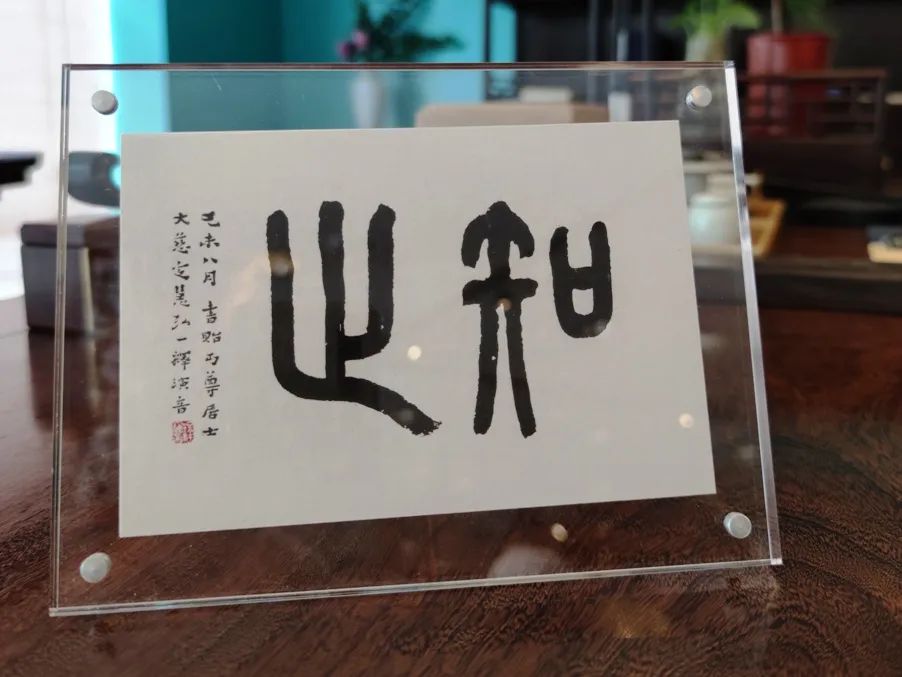 知止
己未八月 貽丏尊居士
大慈定慧弘一釋演音